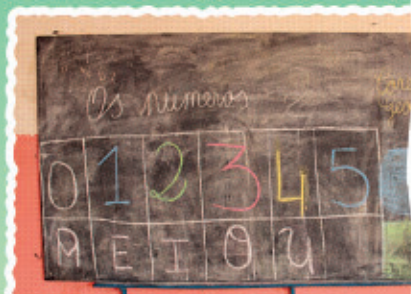 Os numeros
0 1 2 3 4 5
A E I O U